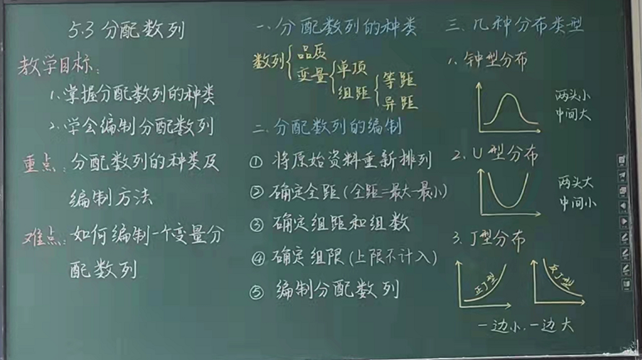 5.3 分配数列
教学目标:
1.掌握分配数列的种类
2.学会编制分配数列
重点: 分配数列的种类及
编制方法
难点: 如何编制一个变量分
配数列
一.分配数列的种类
数列 { 品质
变量 { 单项
组距 { 等距
异距
二.分配数列的编制
① 将原始资料重新排列
② 确定全距(全距=最大-最小)
③ 确定组距和组数
④ 确定组限(上限不计入)
⑤ 编制分配数列
三.几种分布类型
1.钟型分布
两头小
中间大
2.U型分布
两头大
中间小
3.J型分布
正J型
反J型
一边小,一边大